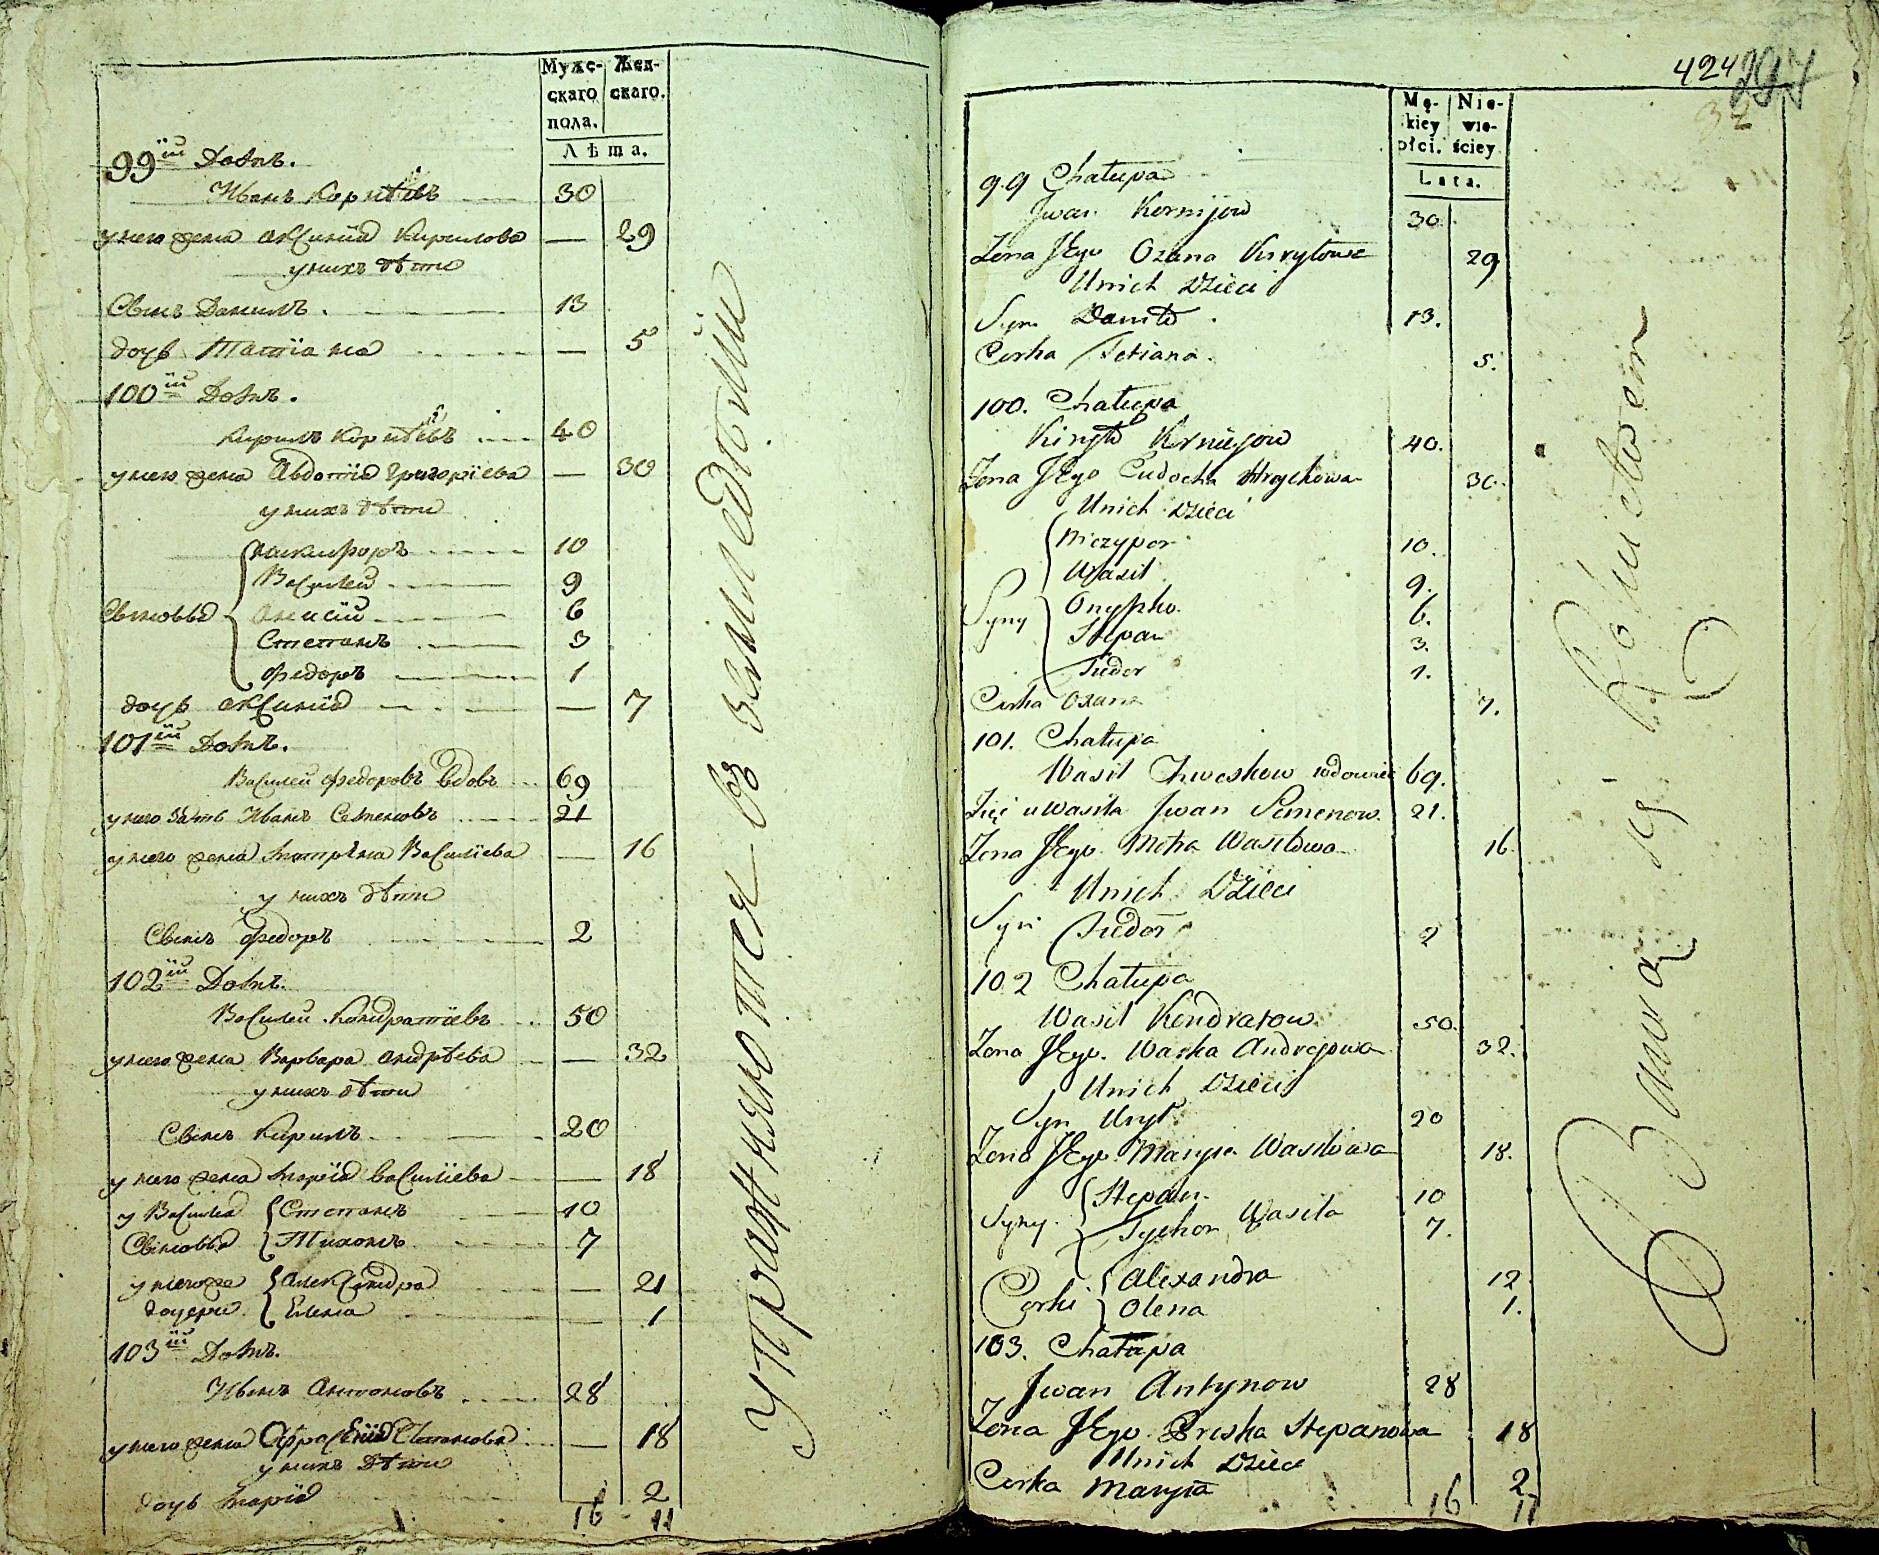 Муже-
скаго
пола.
Жен-
скаго.
Лѣта.
99 ій Домъ.
Иванъ Корнѣевъ 30
у него жена Аксинія Кирилова — 29
у нихъ дѣти
Сынъ Данилъ. 13
дочь Татіана — 5
100 ій Домъ.
Кирилъ Корнѣевъ 40
у него жена Авдотія Григоріева — 30
у нихъ дѣти
Никифоръ 10
Василей 9
Сыновья Анисій 6
Степанъ 3
Федоръ 1
дочь Аксинія — 7
101 ій Домъ.
Василей Федоровъ вдовъ 69
у него зять Иванъ Семеновъ 21
у него жена Матрена Василіева — 16
у нихъ дѣти
Сынъ Федоръ 2
102 ій Домъ.
Василей Кондратіевъ 50
у него жена Варвара Андрѣева — 32
у нихъ дѣти
Сынъ Кирилъ 20
у него жена Марія Василіева — 18
у Василія Степанъ 10
Сыновья Тихонъ 7
у него же Александра — 21
дочери Елена — 1
103 ій Домъ.
Иванъ Антоновъ 28
у него жена Афросинія Степанова — 18
у нихъ дѣти
дочь Марія 2
16 11
упражняются въ земледѣліи
424
297
Mę-
kiey
płci.
Nie-
wie-
ściey
Lata.
99 Chałupa
Jwan Kornijow 30
Zona JEgo Oxana Kiryłowa 29
Unich Dzieci
Syn Daniło 13.
Corka Tetiana. 5.
100. Chałupa
Kiryło Korniejow 40.
Zona JEgo Eudocha Hrychowa 30.
Unich Dzieci
Niczypor 10.
Wasil 9.
Syny Onypko 6.
Stepan 3.
Fiedor 1.
Corka Oxana 7.
101. Chałupa
Wasil Chweskow wdowiec 69.
Zięć u Wasila Jwan Semenow. 21.
Zona JEgo Motra Wasilowa 16.
Unich Dzieci
Syn Fiedor 2
102 Chałupa
Wasil Kondratow 50.
Zona JEgo. Warka Andrejowa 32.
Unich Dzieci
Syn Kirył 20
Zona JEgo Marysia Wasilowa 18.
Stepan 10
Syny Tychon Wasila 7.
Corki Alexandra 12.
Olena 1.
103. Chałupa
Jwan Antynow 28
Zona JEgo Priska Stepanowa 18
Unich Dzieci
Corka Marysia 2
16 11
Bawią się Rolnictwem